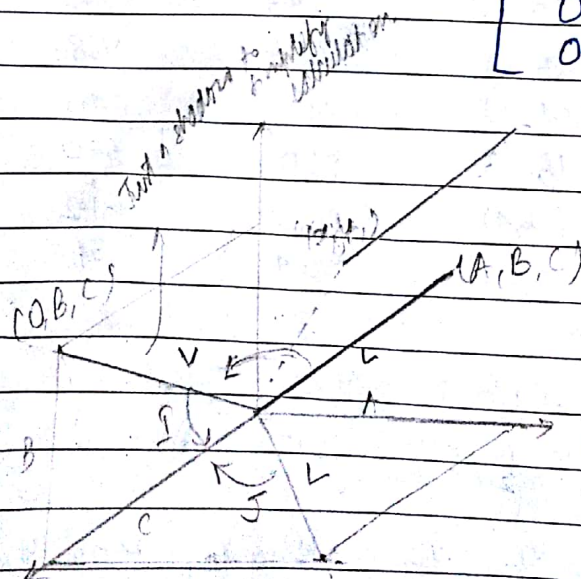 0
0
Just a shadow to
simplify
calculation.
(A, B, C)
(0, B, C)
V
L
A
I
B
L
J
C